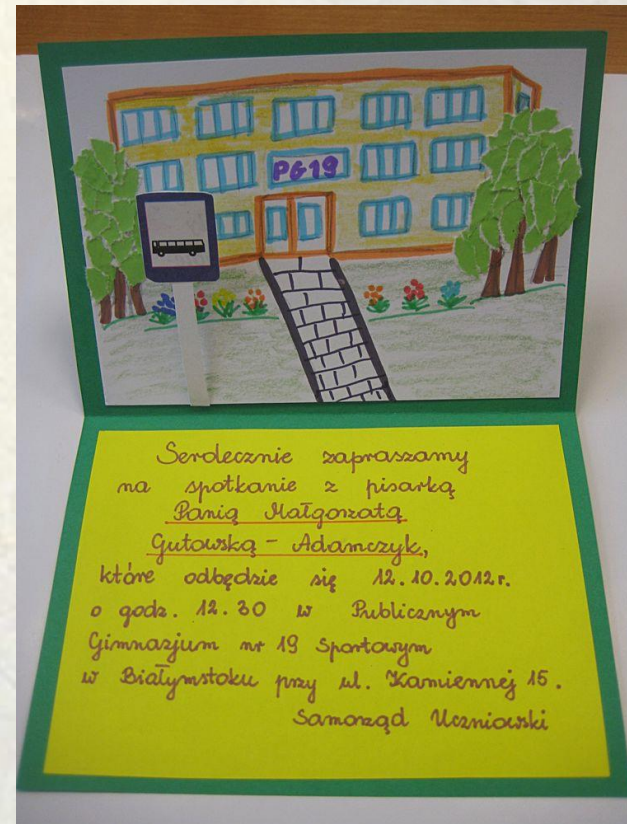 PG19
Serdecznie zapraszamy
na spotkanie z pisarką
Panią Małgorzatą
Gutowską - Adamczyk,
które odbędzie się 12.10.2012r.
o godz. 12.30 w Publicznym
Gimnazjum nr 19 Sportowym
w Białymstoku przy ul. Kamiennej 15.
Samorząd Uczniowski